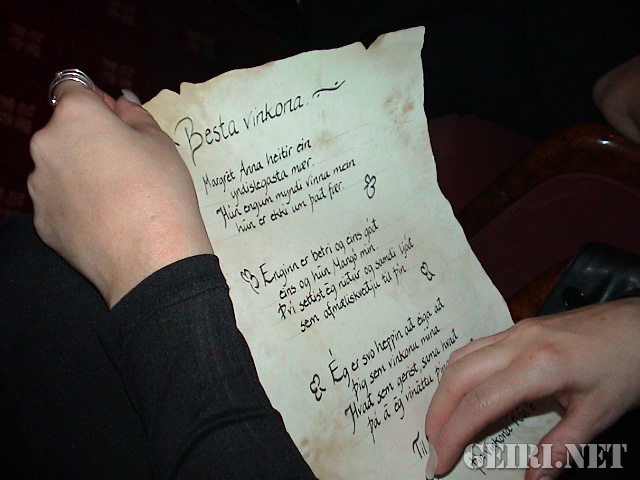 Besta vinkona
Margrét Anna heitir ein
yndislegasta mær.
Hún engum myndi vinna mein
hún er ekki um það fær.
Enginn er betri og eins góð
eins og hún Mangó mín
Því settist ég niður og samdi ljóð
sem afmæliskveðju til þín.
Ég er svo heppin að eiga að
þig sem vinkonu mína
Hvað sem gerist, suma hvað
þá á ég vináttu þína
Til
GEIRI.NET